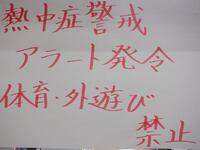 熱中症警戒
アラート発令
体育・外遊び
禁止